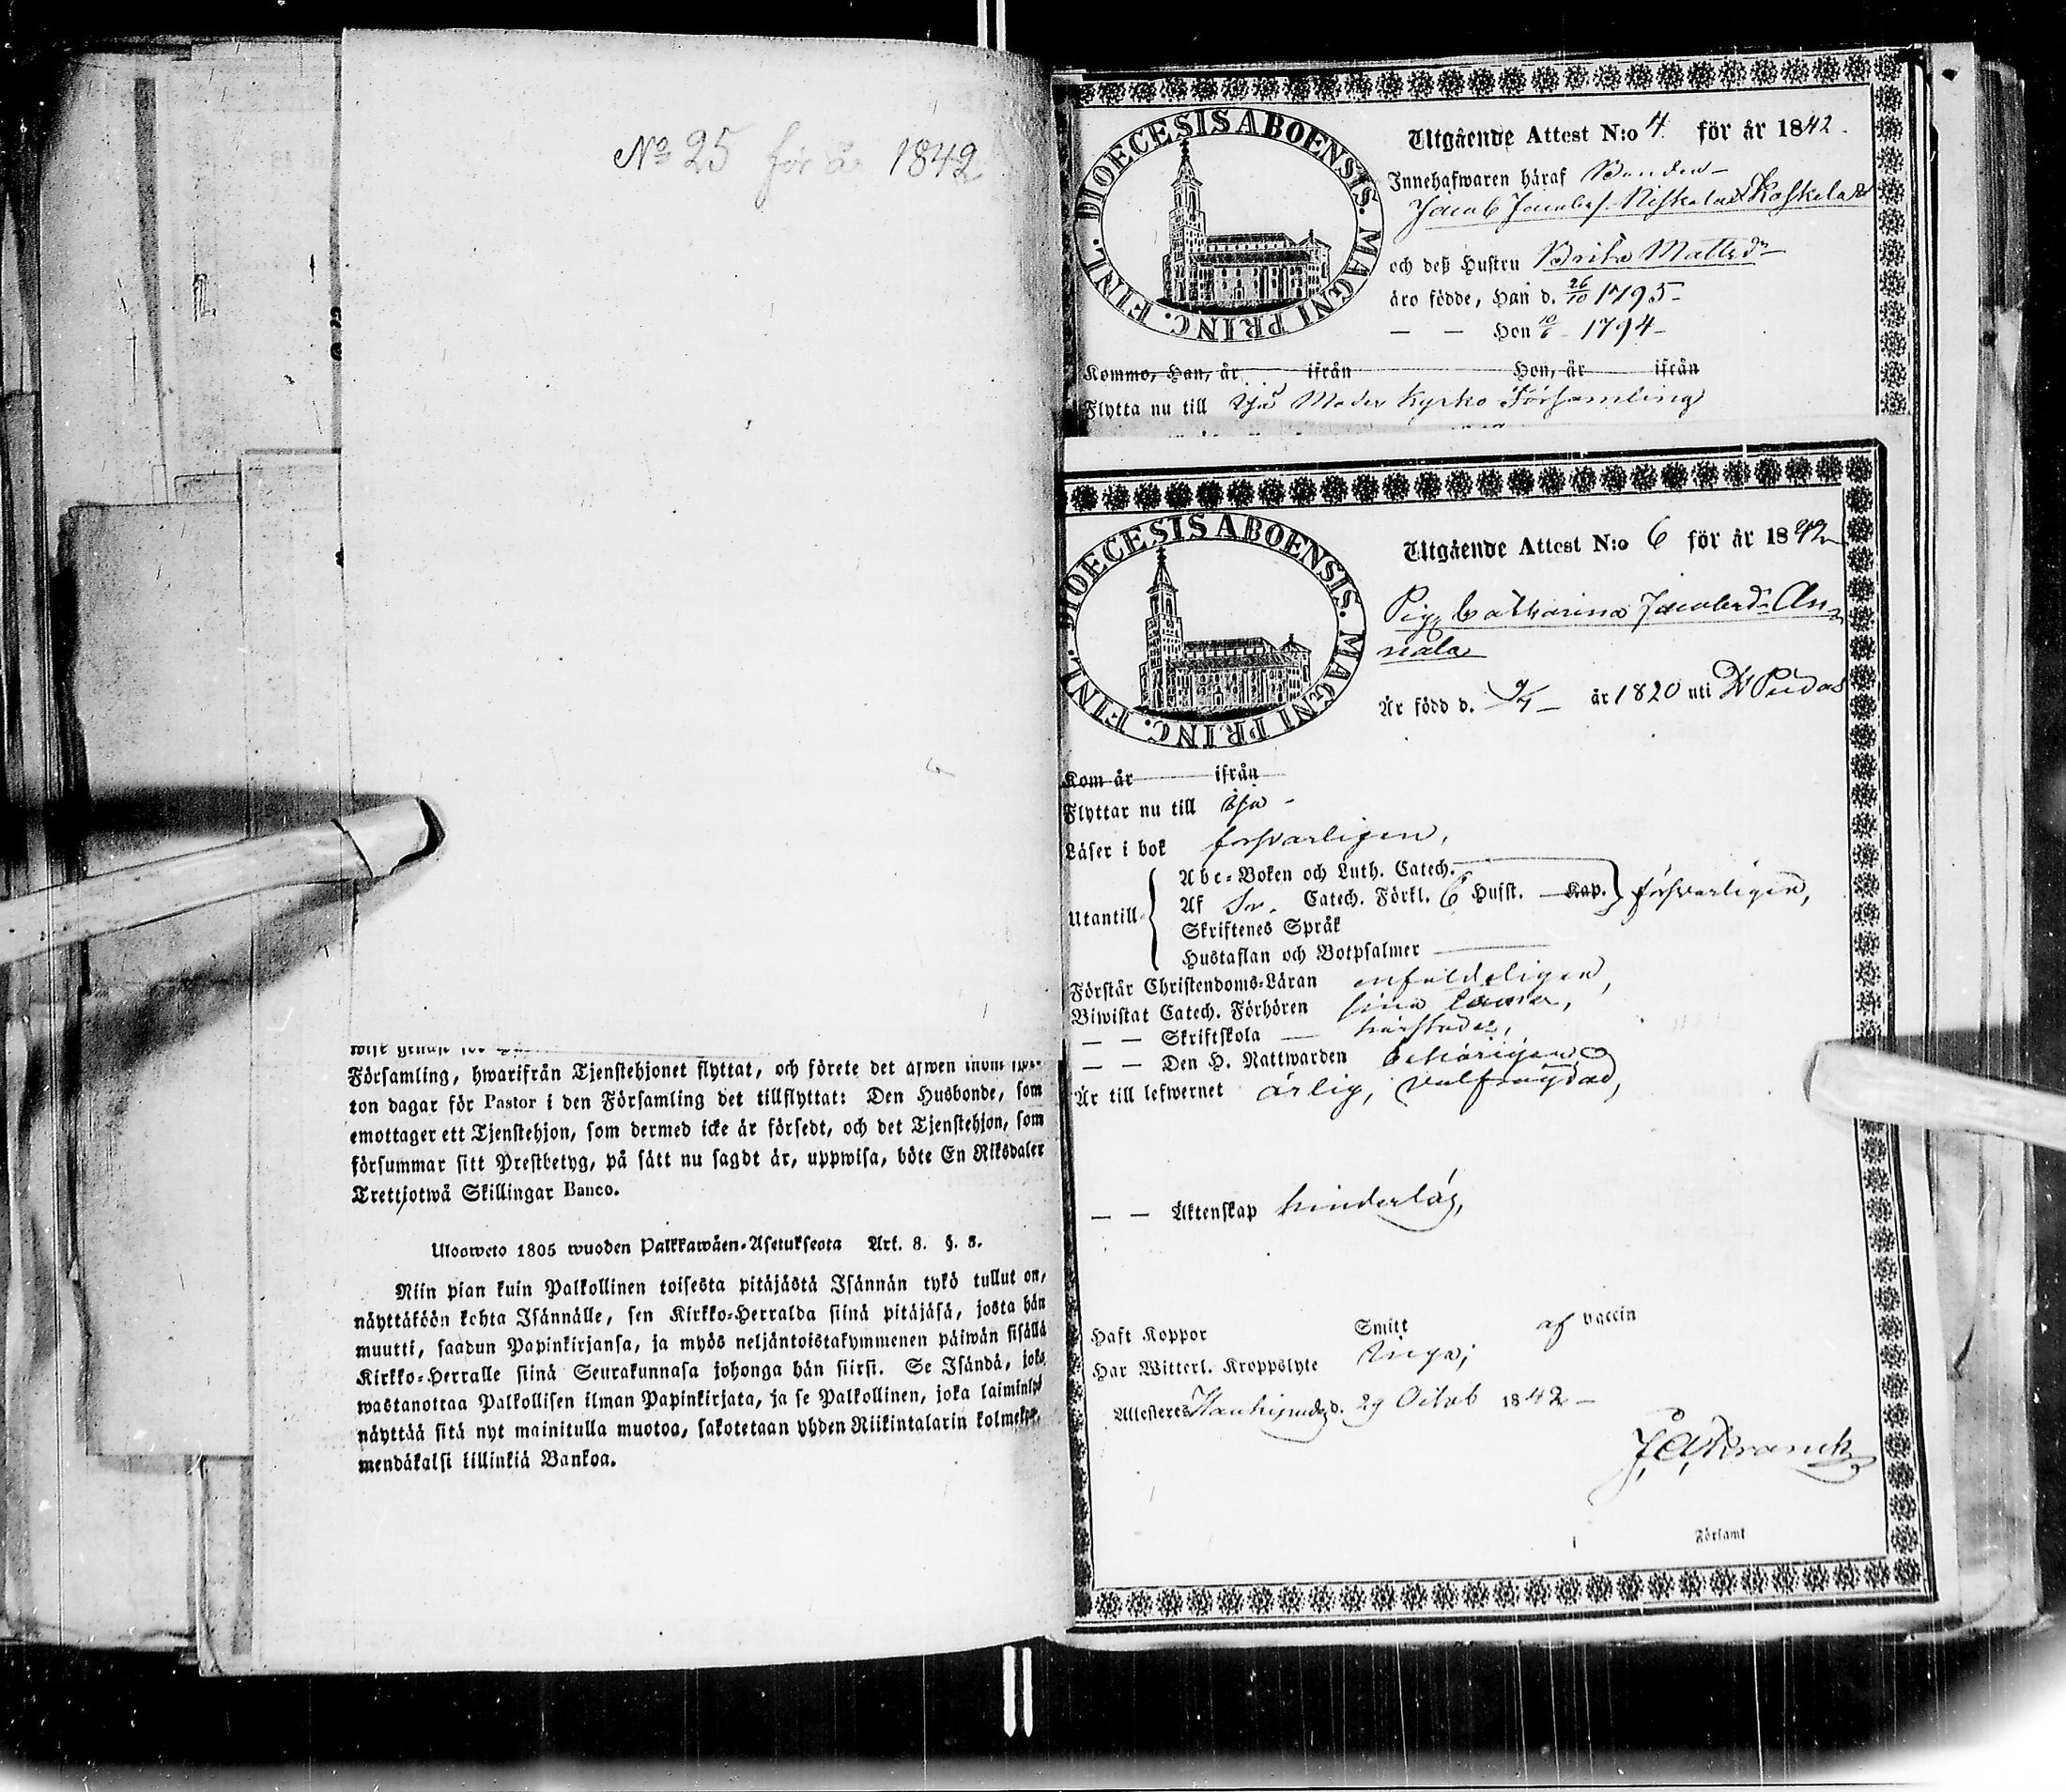 No 25 för år 1842
Församling, hwarifrån Tjenstehjonet flyttat, och förete det äfwen inom
ton dagar för Pastor i den Församling det tillflyttat: Den Husbonde, som
emottager ett Tjenstehjon, som dermed icke är försedt, och det Tjenstehjon, som
försummar sitt Prestbetyg, på sätt nu sagdt är, uppwisa, böte En Riksdaler
Trettjotwå Skillingar Banco.
Uloswcto 1805 wuoden Palkkawäen-Asetuksesta Art. 8. §. 8.
Niin pian kuin Palkollinen toisesta pitäjästä Isännän tykö tullut on,
näyttäköön kohta Isännälle, sen Kirkko-Herralda siinä pitäjäsä, josta hän
muutti, saadun Papinkirjansa, ja myös neljäntoistakymmenen päiwän sisällä
Kirkko-Herralle siinä Seurakunnasa johonga hän siirsi. Se Isändä, joka
wastanottaa Palkollisen ilman Papinkirjata, ja se Palkollinen, joka laiminlyö
näyttää sitä nyt mainitulla muotoa, sakotetaan yhden Riikintalarin kolmekym-
mendäkaksi killinkiä Bankoa.
DIOECESIS ABOENSIS. MAGNI PRINC. FINL.
Utgående Attest N:o 4. för år 1842.
Innehafwaren häraf Bonden
Jacob Jacobss. Niskala Koskela
och deß Hustru Brita Mattsdr
äro födde, Han d. 26/10 1795
— — Hon 10/6 1794
Kommo, Han, år ifrån Hon, år ifrån
Flytta nu till Ijo Moder Kyrko Församling
DIOECESIS ABOENSIS. MAGNI PRINC. FINL.
Utgående Attest N:o 6 för år 1842
Pig. Catharina Jacobsdr An-
nala
Är född d. 9/4 år 1820 uti Pudas
Kom år ifrån
Flyttar nu till Ijo
Läser i bok försvarligen,
Utantill
Abc-Boken och Luth. Catech.
Af Sv. Catech. Förkl. 6 Hufst. Kap. försvarligen,
Skriftenes Språk
Hustaflan och Botpsalmer
Förstår Christendoms-Läran enfaldeligen,
Biwistat Catech. Förhören sina
— — Skriftskola — härstädes,
— — Den H. Nattwarden behörigen
Är till lefwernet ärlig, välfrägdad,
— — Äktenskap hinderlös,
Haft Koppor Smitt af vaccin
Har Witterl. Kroppslyte Inga;
Attesteres Haukipudas d. 29 Octob 1842
Församl